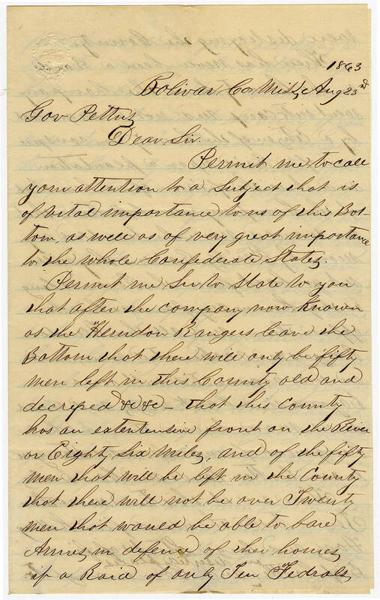 1863
Bolivar Co Miss, Aug 23rd
Gov Pettus,
Dear Sir.
Permit me to call
your attention to a Subject that is
of vital importance to us of this Bot-
tom, as well as of very great importance
to the whole Confederate States.
Permit me Sir to State to you
that after the company now Known
as the Herndon Rangers leave the
Bottom that there will only be fifty
men left in this County old and
decriped &c &c — that this County
has an extentensive front on the River
or Eighty Six Miles, and of the fifty
men that will be left in the County
that there will not be over Twenty
men that would be able to bare
Armes, in defence of their homes,
if a Raid of only Ten Fedrals,